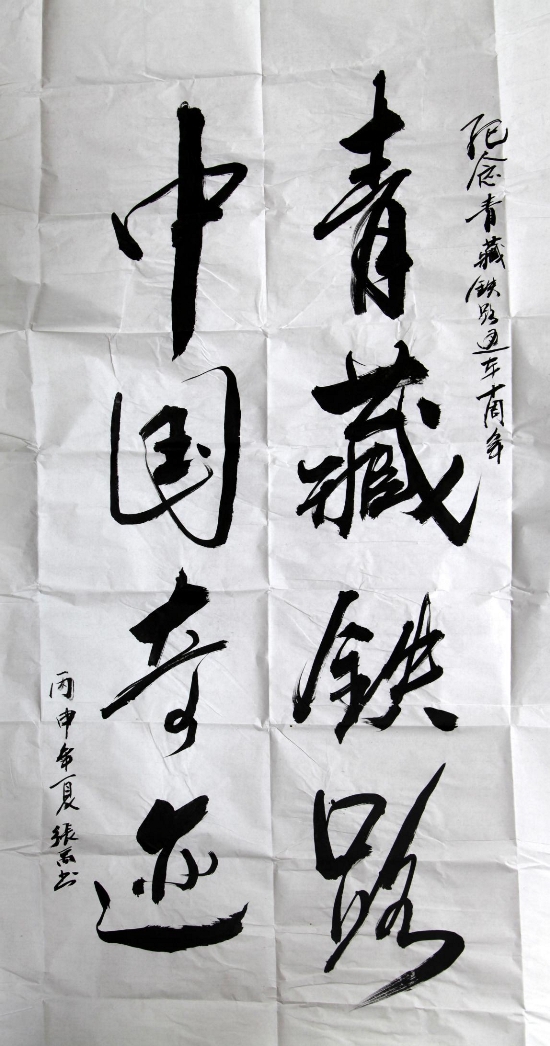 纪念青藏铁路通车十周年
青藏铁路
中国奇迹
丙申年夏 张 书